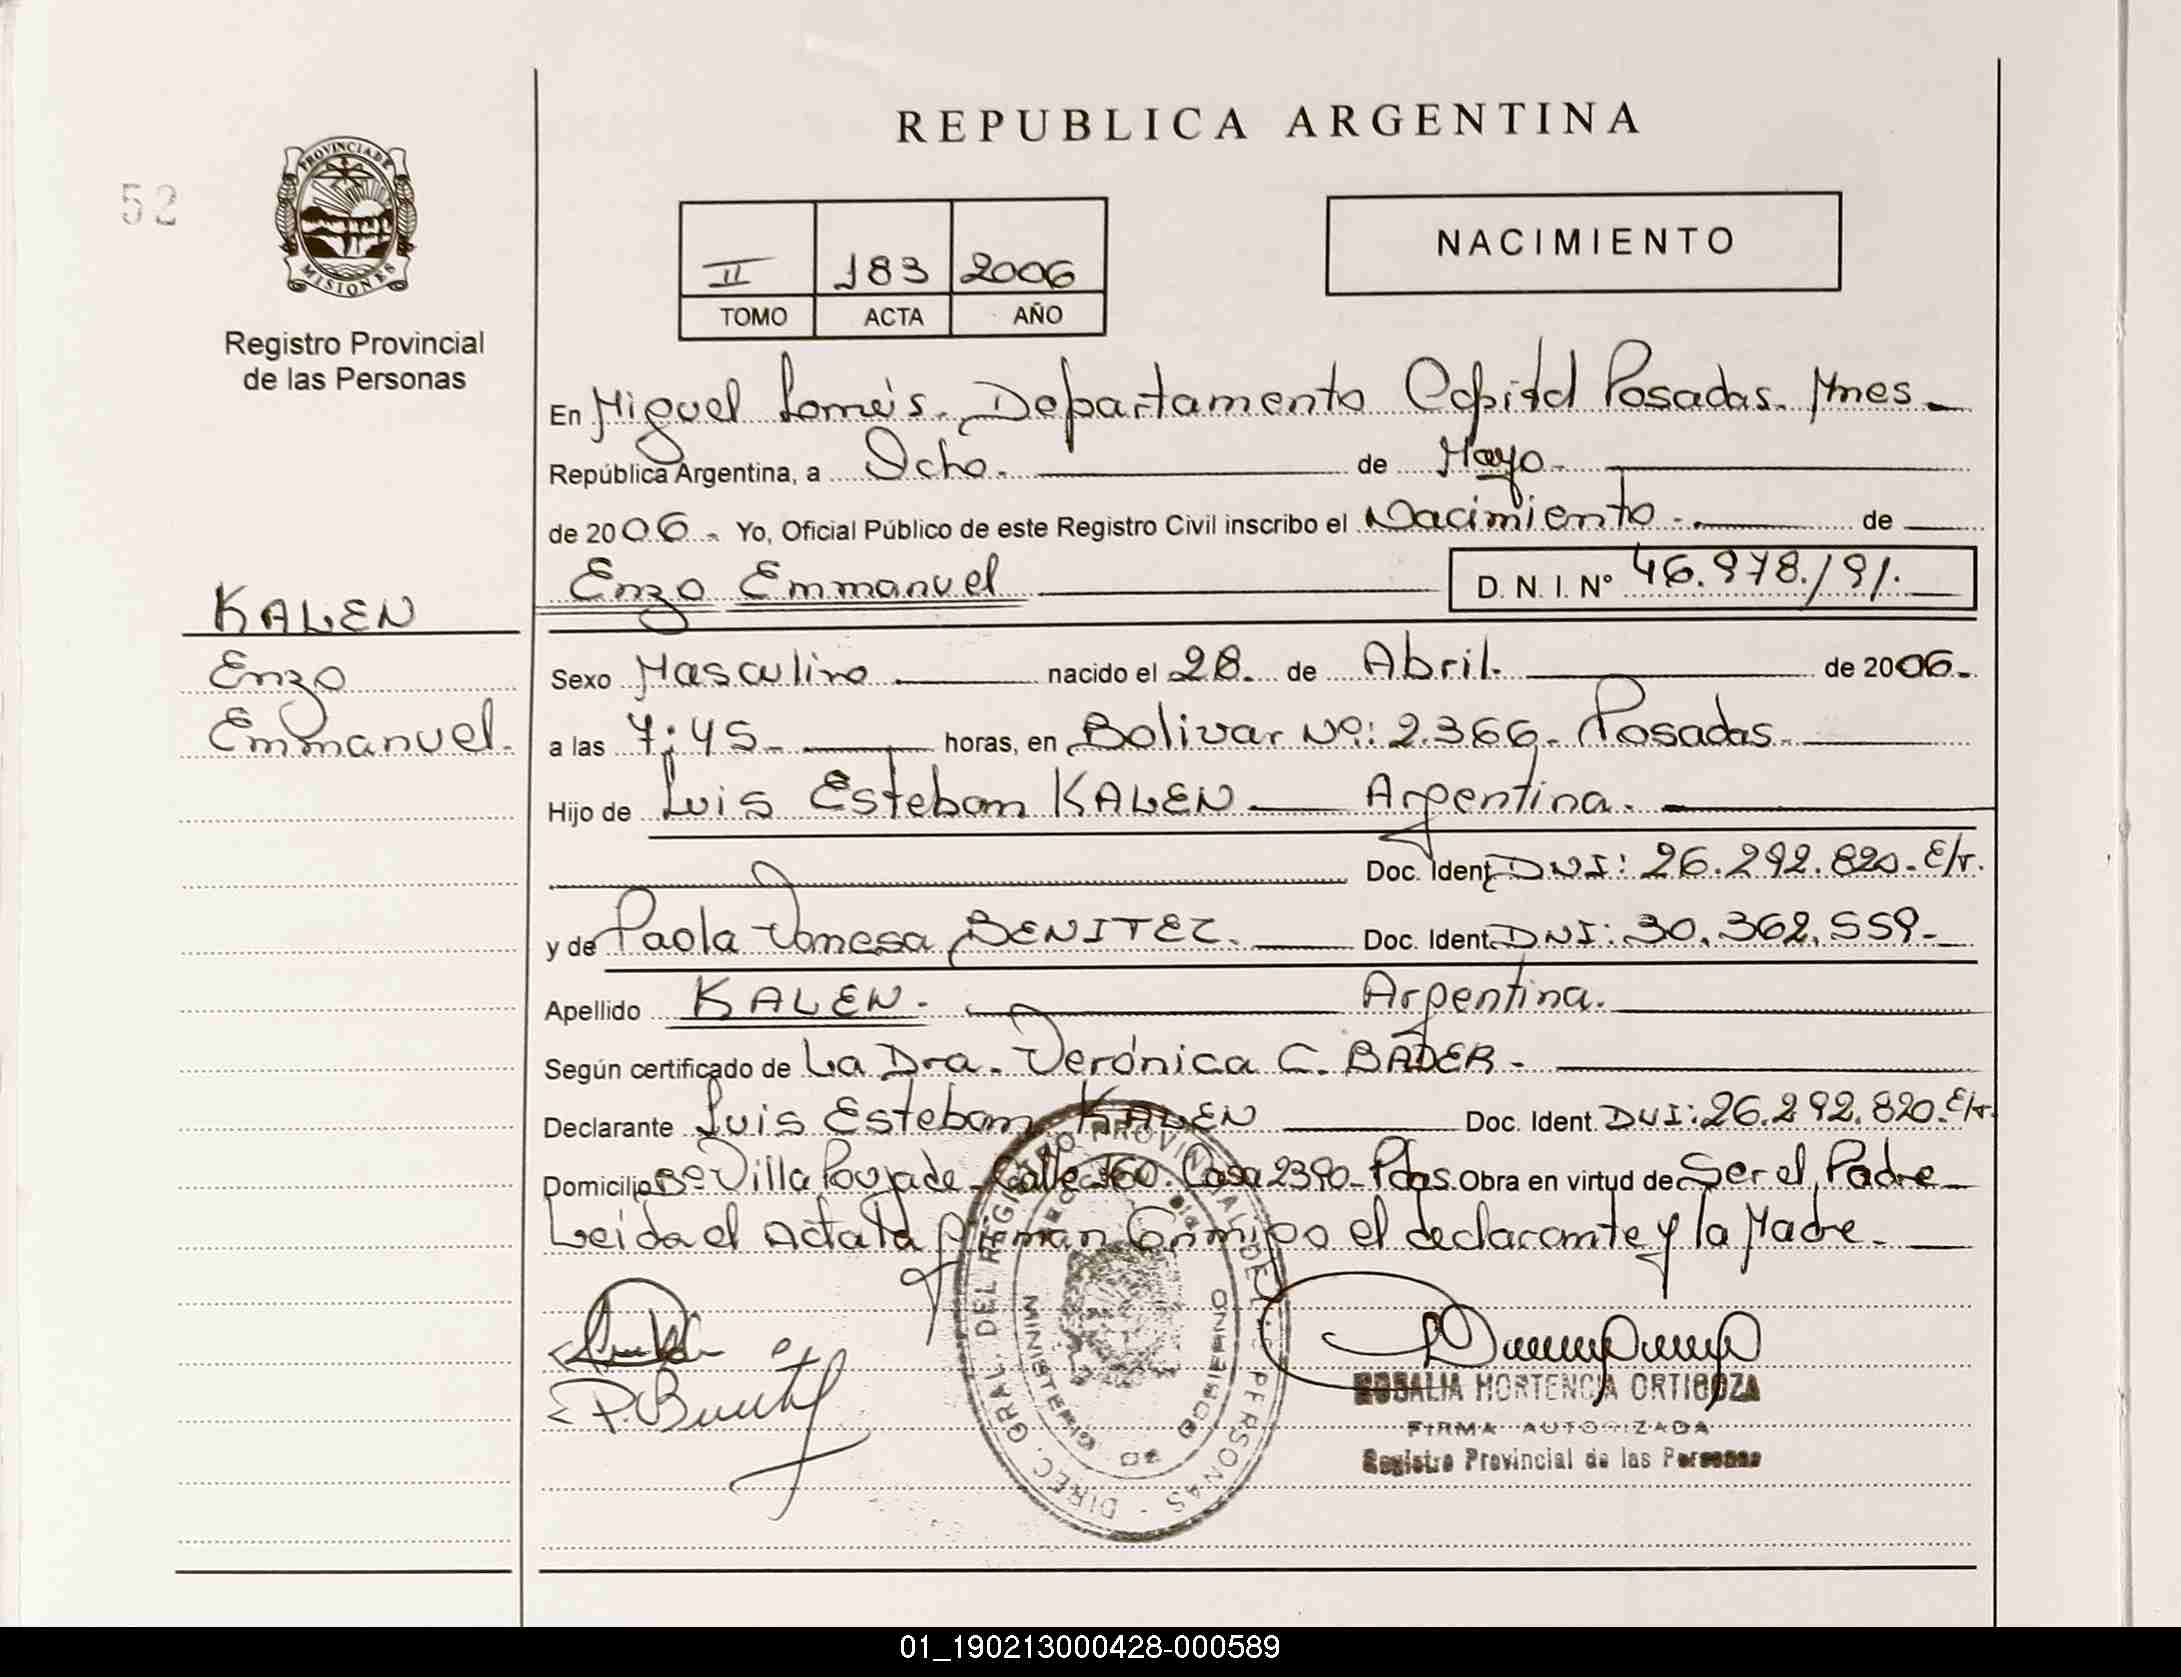 REPUBLICA ARGENTINA
52
PROVINCIA DE
MISIONES
Registro Provincial
de las Personas
II 183 2006
TOMO ACTA AÑO
NACIMIENTO
En Miguel Departamento Capital Posadas. Mnes
República Argentina, a Ocho. de Mayo
de 2006. Yo, Oficial Público de este Registro Civil inscribo el Nacimiento de
Enzo Emmanuel D. N. I. Nº
KALEN
Enzo
Emmanuel.
Sexo Masculino nacido el 28. de Abril. de 2006.
a las 7:45 horas, en Bolivar Nº: 2.366. Posadas
Hijo de Luis Esteban KALEN Argentina.
Doc. Ident. DNI: 26.292.820. E/r.
y de Paola Vanesa BENITEZ. Doc. Ident. DNI: 30.362.559.
Apellido KALEN. Argentina.
Según certificado de La Dra. Verónica C. BADER.
Declarante Luis Esteban KALEN Doc. Ident. DNI: 26.292.820. E/r.
Domicilio Bº Villa Poujade. Calle 160. Casa 2390. Pdas. Obra en virtud de Ser el Padre
Leida el Acta la Firman Conmigo el declarante y la Madre.
DIREC. GRAL. DEL REGISTRO PROVINCIAL DE PERSONAS
MINISTERIO DE GOBIERNO
ROSALIA HORTENCIA ORTIGOZA
FIRMA AUTORIZADA
Registro Provincial de las Personas
01_190213000428-000589